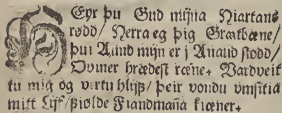 HEyr þu Gud mijna Hiartans
rødd / Herra eg þig Grætbæne /
þui Aund mijn er i Anaud stødd /
Oviner hrædest ræne + Vardveit
tu mig og vertu blijþ / þeir vondu vmsitia
mitt Lijf / Fiølde Fiandmaña kiæner +